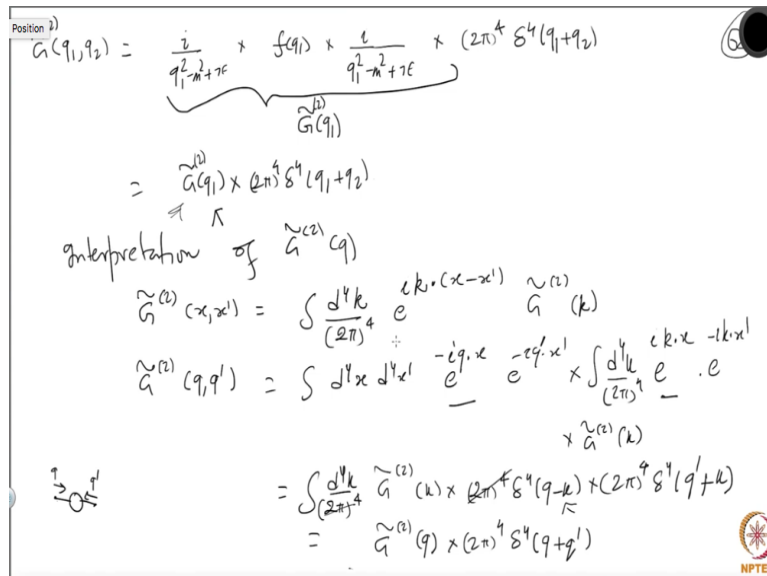 Position
G̃⁽²⁾(q₁,q₂) = i/(q₁²-m²+iε) × f(q₁) × i/(q₁²-m²+iε) × (2π)⁴ δ⁴(q₁+q₂)
G̃⁽²⁾(q₁)
= G̃⁽²⁾(q₁) × (2π)⁴ δ⁴(q₁+q₂)
Interpretation of G̃⁽²⁾(q)
G̃⁽²⁾(x,x') = ∫ d⁴k/(2π)⁴ e^{ik·(x-x')} G̃⁽²⁾(k)
G̃⁽²⁾(q,q') = ∫ d⁴x d⁴x' e^{-iq·x} e^{-iq'·x'} × ∫ d⁴k/(2π)⁴ e^{ik·x} . e^{-ik·x'}
× G̃⁽²⁾(k)
q q'
= ∫ d⁴k/(2π)⁴ G̃⁽²⁾(k) × (2π)⁴ δ⁴(q-k) × (2π)⁴ δ⁴(q'+k)
= G̃⁽²⁾(q) × (2π)⁴ δ⁴(q+q')
NPTE